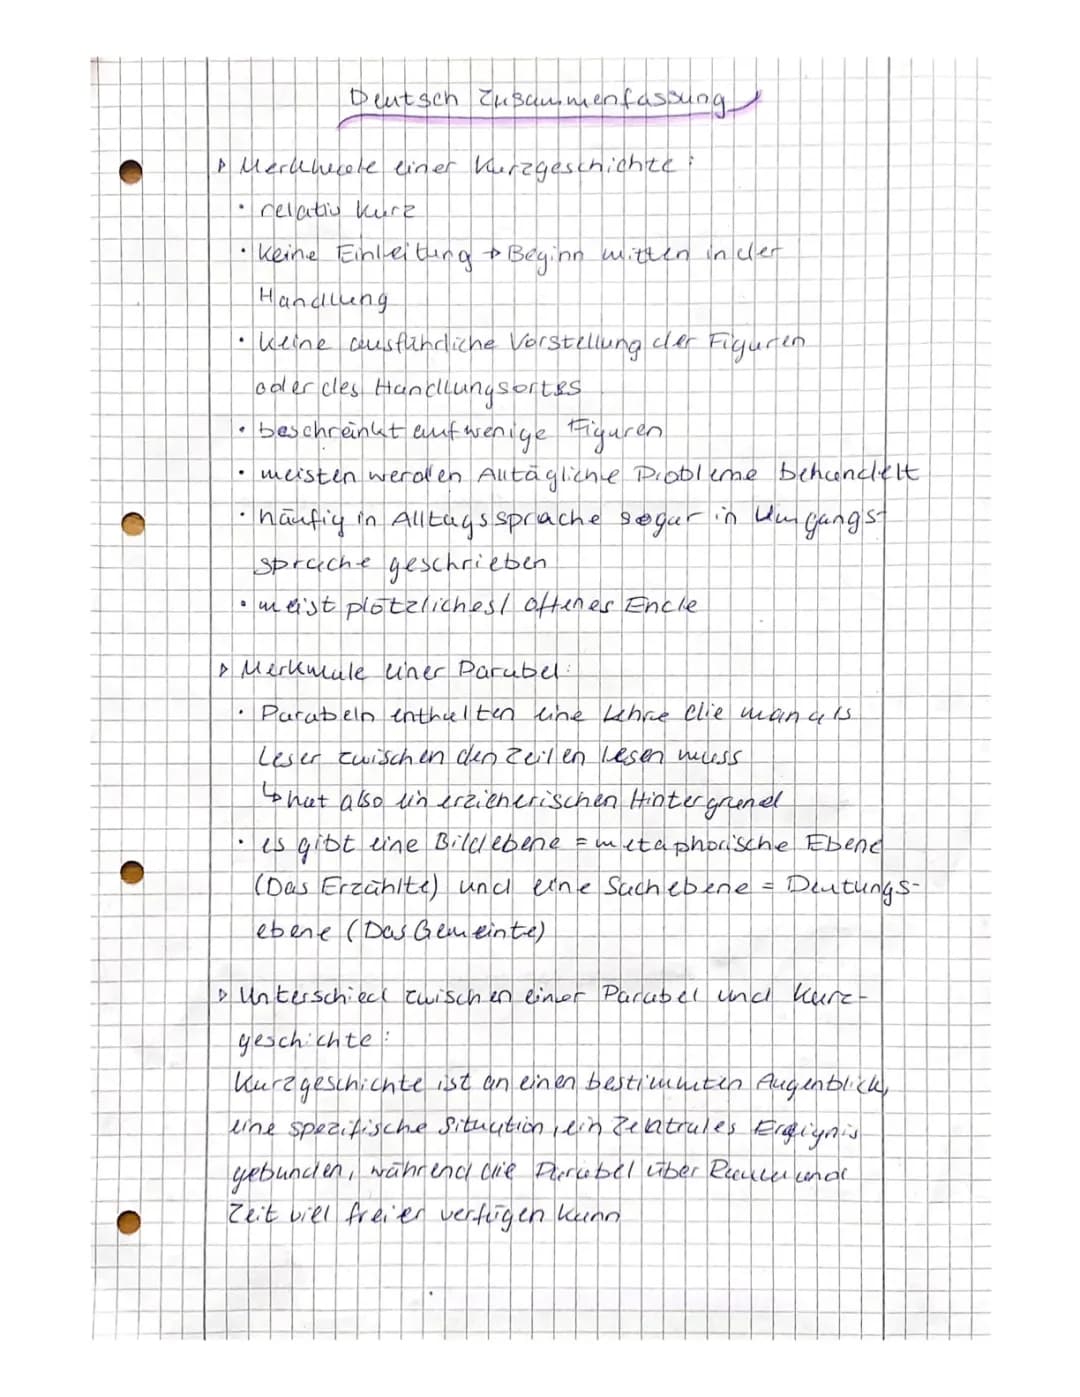 Deutsch Zusammenfassung
▹ Merkmale einer Kurzgeschichte:
• relativ kurz
• keine Einleitung → Beginn mitten in der
Handlung
• keine ausführliche Vorstellung der Figuren
oder des Handlungsortes
• beschränkt auf wenige Figuren
• meisten werden Alltägliche Probleme behandelt
• häufig in Alltagssprache sogar in Umgangs-
sprache geschrieben
• meist plötzliches/ offenes Ende
▹ Merkmale einer Parabel:
• Parabeln enthalten eine Lehre die man als
Leser zwischen den Zeilen lesen muss
↳ hat also ein erzieherischen Hintergrund
• es gibt eine Bildebene = metaphorische Ebene
(Das Erzählte) und eine Sachebene = Deutungs-
ebene (Das Gemeinte)
▹ Unterschied zwischen einer Parabel und Kurz-
geschichte:
Kurzgeschichte ist an einen bestimmten Augenblick,
eine spezifische Situation, ein Zentrales Ereignis
gebunden, während die Parabel über Raum und
Zeit viel freier verfügen kann